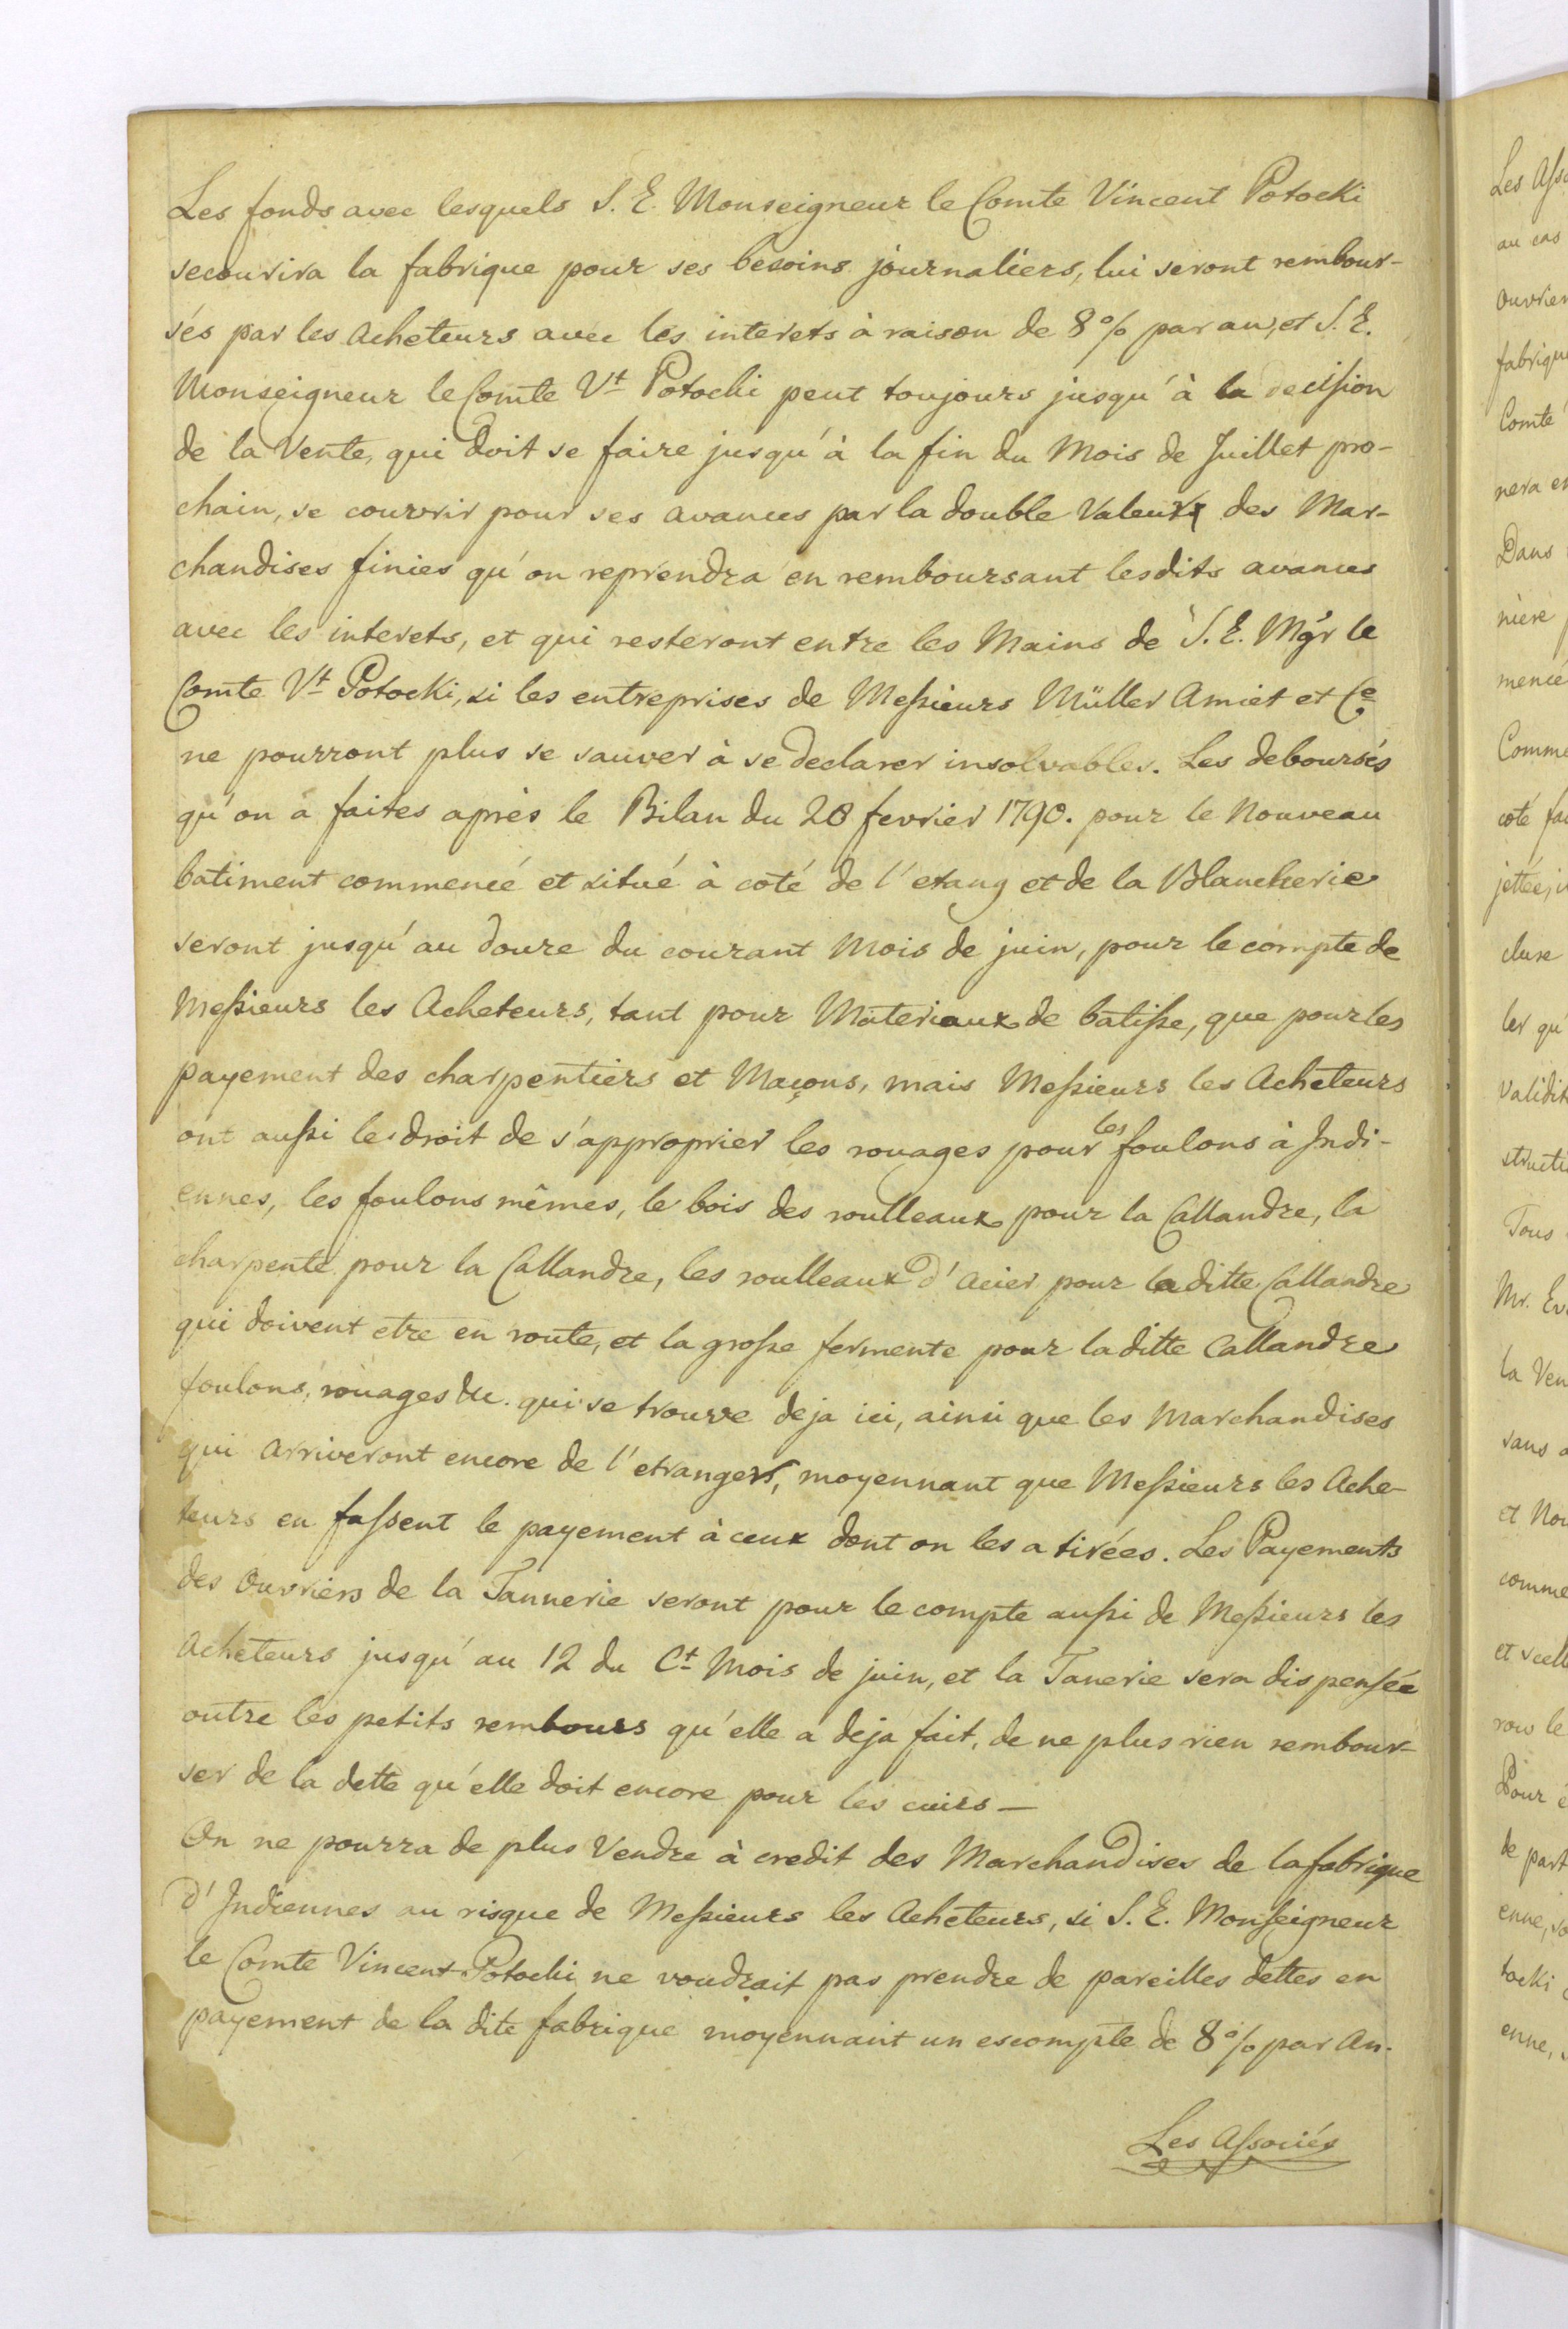 Les fonds avec lesquels S. E. Monseigneur le Comte Vincent Potocki
secourira la fabrique pour ses besoins journaliers, lui seront rembour-
sés par les Acheteurs avec les interets à raison de 8% par an, et S. E.
Monseigneur le Comte Vt Potocki peut toujours jusqu'à la decision
de la Vente, qui doit se faire jusqu'à la fin du Mois de Juillet pro-
chain, se couvrir pour ses avances par la double Valeur des Mar-
chandises finies qu'on reprendra en remboursant lesdits avances
avec les interets, et qui resteront entre les Mains de S. E. Mgr le
Comte Vt Potocki, si les entreprises de Messieurs Müller Amiet et Ce
ne pourront plus se sauver à se declarer insolvables. Les deboursés
qu'on a faites après le Bilan du 28 fevrier 1790. pour le Nouveau
batiment commencé et situé à coté de l'etang et de la Blancherie
seront jusqu'au douze du courant Mois de juin, pour le compte de
Messieurs les Acheteurs, tant pour Materiaux de batisse, que pour les
payement des charpentiers et Maçons, mais Messieurs les Acheteurs
ont aussi le droit de s'approprier les rouages pour les foulons à Indi-
ennes, les foulons mêmes, le bois des roulleaux pour la Callandre, la
charpente pour la Callandre, les roulleaux d'acier pour laditte Callandre
qui doivent etre en route, et la grosse fermente pour laditte Callandre
foulons, rouages &c. qui se trouve deja ici, ainsi que les Marchandises
qui arriveront encore de l'etranger, moyennant que Messieurs les Ache-
teurs en fassent le payement à ceux dont on les a tirées. Les Payements
des Ouvriers de la Tannerie seront pour le compte aussi de Messieurs les
Acheteurs jusqu'au 12 du Ct Mois de juin, et la Tanerie sera dispensée
outre les petits rembours qu'elle a deja fait, de ne plus rien rembour-
ser de la dette qu'elle doit encore pour les cuirs —
On ne pourra de plus Vendre à credit des Marchandises de la fabrique
d'Indiennes au risque de Messieurs les Acheteurs, si S. E. Monseigneur
le Comte Vincent Potocki ne voudrait pas prendre de pareilles dettes en
payement de la dite fabrique moyennant un escompte de 8% par An.
Les Associés
Les
au cas
fabrique
Comte
Dans
Tous
la Ven
comme
Pour
de part